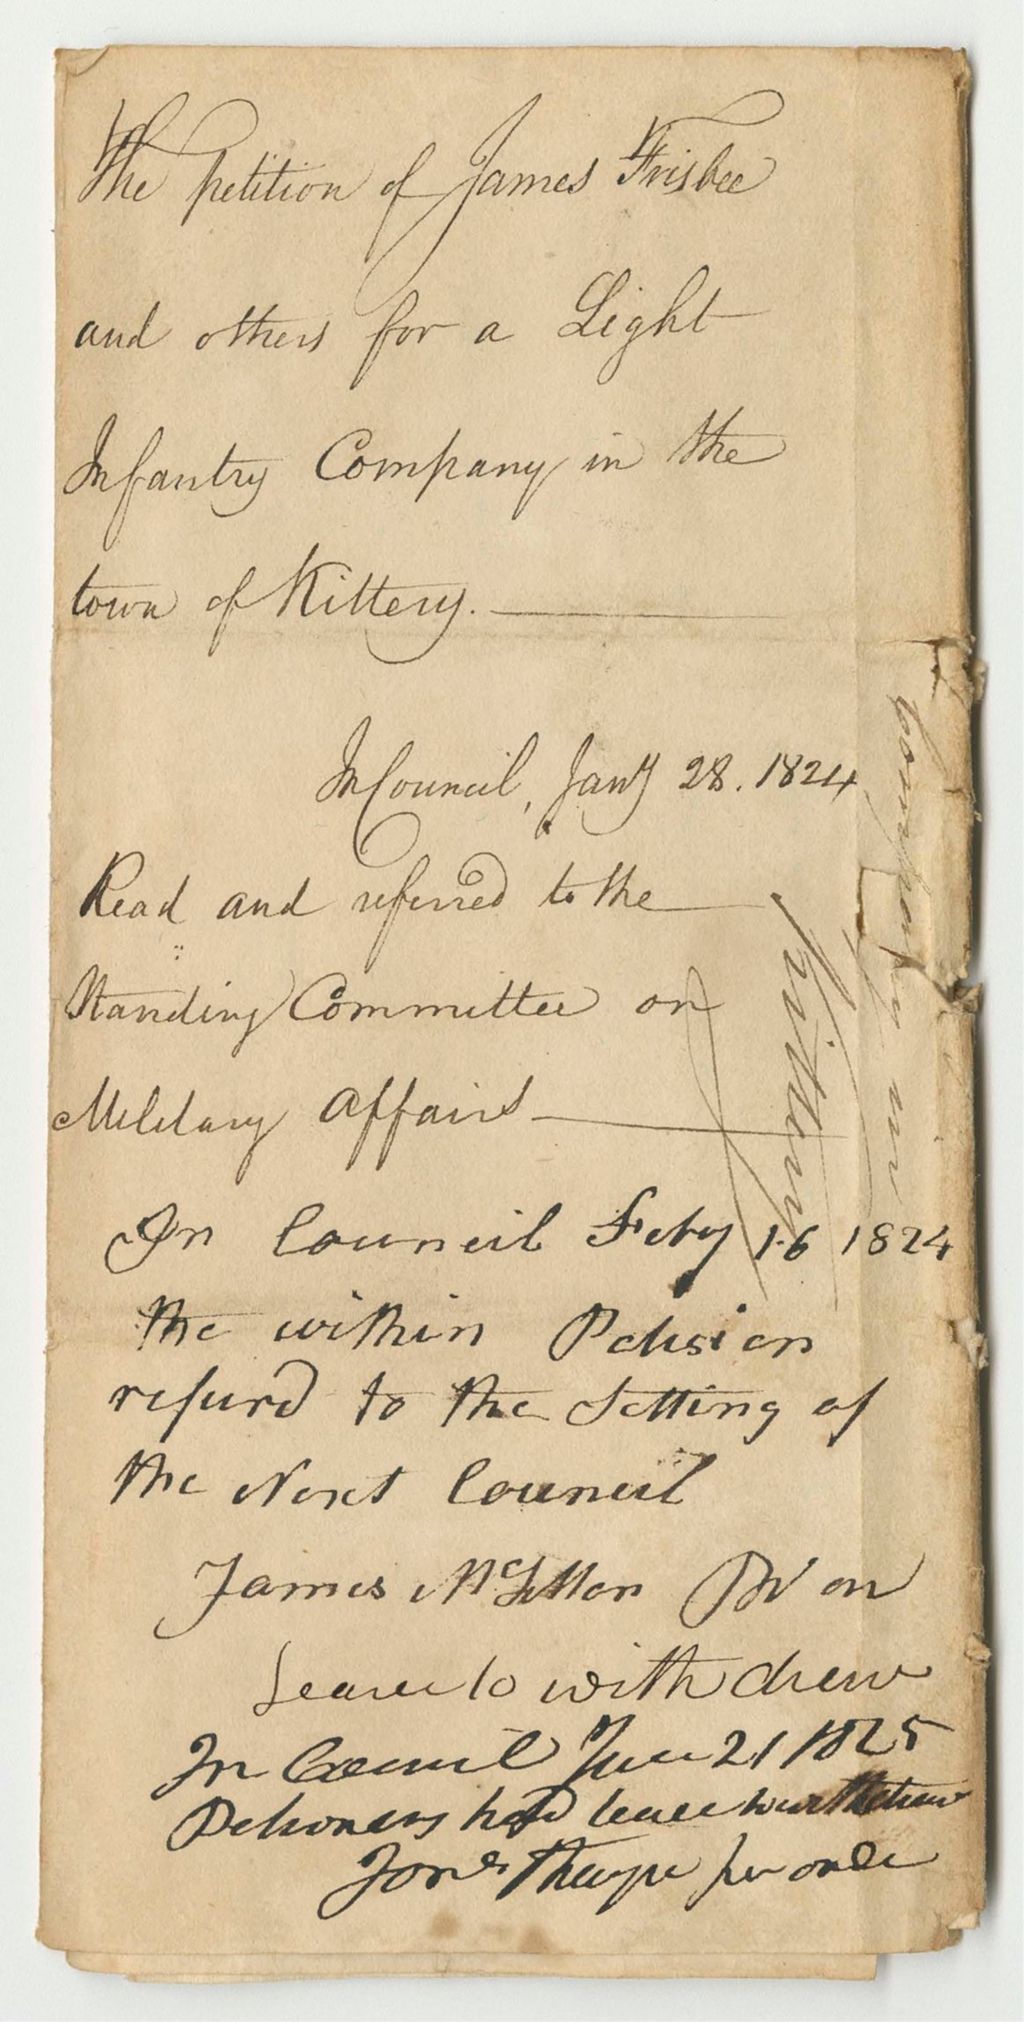 The petition of James Frisbee
and others for a Light
Infantry Company in the
town of Kittery.
In Council, Jany 28. 1824
Read and referred to the
Standing Committee on
Military Affairs
In Council Feby 16 1824
the within Petision
refurd to the Setting of
the Next Council
James
Leave to withdrew
In Council 21 1825
had leave
per order
Kittery
Company